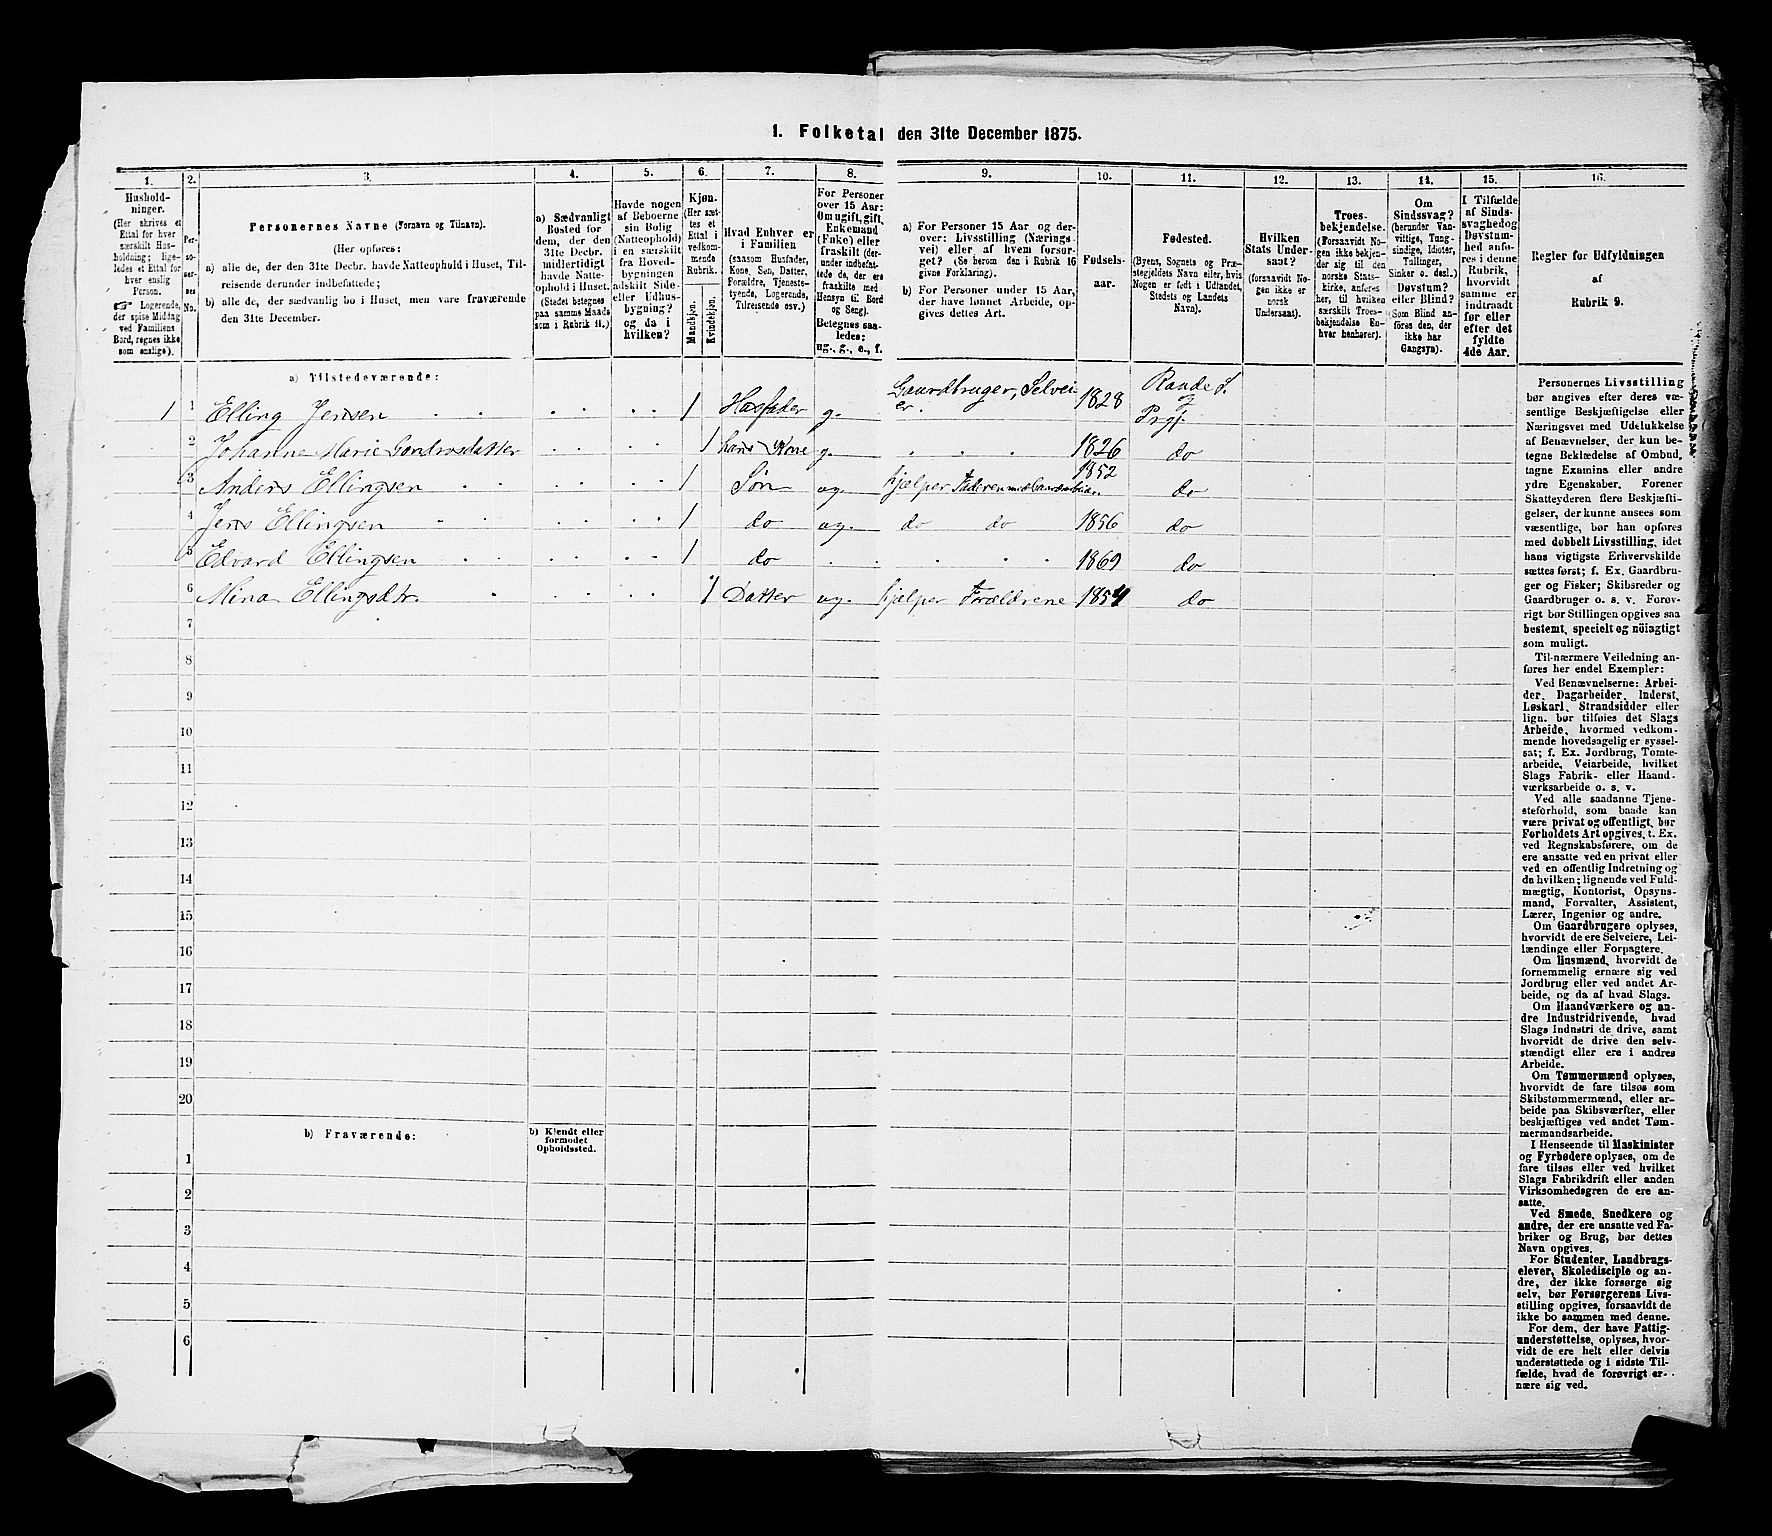 1. Folketal den 31te December 1875.
1.
2.
3.
4.
5.
6.
7.
8.
9.
10.
11.
12.
13.
14.
15.
16.
Husholdninger.
(Her skrives et
Ettal for hver
særskilt Husholdning;
ligeledes et Ettal for
hver enslig
Person.
☛ Logerende,
der spise Middag
ved Familiens
Bord, regnes ikke
som enslige).
Personernes No.
Personernes Navne (Fornavn og Tilnavn).
(Her opføres:
a) alle de, der den 31te Decbr. havde Natteophold i Huset, Tilreisende
derunder indbefattede;
b) alle de, der sædvanlig bo i Huset, men vare fraværende
den 31te December.
a) Sædvanligt
Bosted for
dem, der den
31te Decbr.
midlertidigt
havde Natteophold
i Huset.
(Stedet betegnes
paa samme Maade
som i Rubrik 11.)
Havde nogen
af Beboerne
sin Bolig
(Natteophold)
i en særskilt
fra Hovedbygningen
adskilt Side-
eller Udhusbygning?
og da i
hvilken?
Kjøn.
(Her sættes
et
Ettal i
vedkommende
Rubrik.
Mandkjøn.
Kvindekjøn.
Hvad Enhver er
i Familien
(saasom Husfader,
Kone, Søn, Datter,
Forældre, Tjenestetyende,
Logerende,
Tilreisende osv.)
For Personer
over 15 Aar:
Om ugift, gift,
Enkemand
(Enke) eller
fraskilt (derunder
indbefattede
de, der ere
fraskilte med
Hensyn til Bord
og Seng).
Betegnes saaledes:
ug., g., e., f.
a) For Personer 15 Aar og derover:
Livsstilling (Næringsvei)
eller af hvem forsørget?
(Se herom den i Rubrik 16
givne Forklaring).
b) For Personer under 15 Aar,
der have lønnet Arbeide, opgives
dettes Art.
Fødselsaar.
Fødested.
(Byens, Sognets og Præstegjeldets
Navn eller, hvis
Nogen er født i Udlandet,
Stedets og Landets
Navn).
Hvilken
Stats Undersaat?
(forsaavidt Nogen
ikke er
norsk
Undersaat).
Troesbekjendelse.
(Forsaavidt Nogen
ikke bekjender
sig til den
norske Statskirke,
anføres
her, til hvilken
særskilt Troesbekjendelse
Enhver
henhører).
Om
Sindssvag?
(herunder Vanvittige,
Tungsindige,
Idioter,
Tullinger,
Sinker o. desl.)
Døvstum?
eller Blind?
(Som Blind anføres
den, der
ikke har
Gangsyn).
I Tilfælde
af Sindssvaghed
og
Døvstumhed
anføres
i denne
Rubrik,
hvorvidt
samme er
indtraadt
før eller
efter det
fyldte
4de Aar.
Regler for Udfyldningen
af
Rubrik 9.
a) Tilstedeværende:
1 1 Elling Jensen 1 Husfader g. Gaardbruger, Selveier. 1828 Rande S. Prgj.
2 Johanne Marie 1 hans Kone g. 1826 do
3 Anders Ellingsen 1 Søn ug. hjælper Faderen med Gaardsarbeide. 1852 do
4 Jens Ellingsen 1 do ug. do do 1856 do
5 Edvard Ellingsen 1 do 1869 do
6 Mina Ellingsdtr. 1 Datter ug. hjælper Forældrene 1854 do
7
8
9
10
11
12
13
14
15
16
17
18
19
20
b) Fraværende:
b) Kjendt eller
formodet
Opholdssted.
1
2
3
4
5
6
Personernes Livsstilling
bør angives efter deres væsentlige
Beskjæftigelse eller
Næringsvei med Udelukkelse
af Benævnelser, der kun betegne
Beklædelse af Ombud,
tagne Examina eller andre
ydre Egenskaber. Forener
Skatteyderen flere Beskjæftigelser,
der kunne ansees som
væsentlige, bør han opføres
med dobbelt Livsstilling, idet
hans vigtigste Erhvervskilde
sættes først; f. Ex. Gaardbruger
og Fisker; Skibsreder og
Gaardbruger o. s. v. Forøvrigt
bør Stillingen opgives saa
bestemt, specielt og nöiagtigt
som muligt.
Til nærmere Veiledning anføres
her endel Exempler:
Ved Benævnelserne: Arbeider,
Dagarbeider, Inderst,
Løskarl, Strandsidder eller
lign. bør tilføies det Slags
Arbeide, hvormed vedkommende
hovedsagelig er sysselsat;
f. Ex. Jordbrug, Tomtearbeide,
Veiarbeide, hvilket
Slags Fabrik- eller Haandværksarbeide
o. s. v.
Ved alle saadanne Tjenesteforhold,
som baade kan
være privat og offentligt, bør
Forholdets Art opgives, t. Ex.
ved Regnskabsførere, om de
ere ansatte ved en privat eller
ved en offentlig Indretning og
da hvilken; lignende ved Fuldmægtig,
Kontorist, Opsynsmand,
Forvalter, Assistent,
Lærer, Ingeniør og andre.
Om Gaardbrugere oplyses,
hvorvidt de ere Selveiere, Leilændinge
eller Forpagtere.
Om Husmænd, hvorvidt de
fornemmelig ernære sig ved
Jordbrug eller ved andet Arbeide,
og da af hvad Slags.
Om Haandværkere og andre
Industridrivende, hvad
Slags Industri de drive, samt
hvorvidt de drive den selvstændigt
eller ere i andres
Arbeide.
Om Tømmermænd oplyses,
hvorvidt de fare tilsøs som
Skibstømmermænd, eller arbeide
paa Skibsværfter, eller
beskjæftiges ved andet Tømmermandsarbeide.
I Henseende til Maskinister
og Fyrbødere oplyses, om de
fare tilsøs eller ved hvilket
Slags Fabrikdrift eller anden
Virksomhedsgren de ere ansatte.
Ved Smede, Snedkere og
andre, der ere ansatte ved Fabriker
og Brug, bør dettes
Navn opgives.
For Studenter, Landbrugselever,
Skoledisciple og andre,
der ikke forsørge sig
selv, bør Forsørgerens Livsstilling
opgives, forsaavidt de
ikke bo sammen med denne.
For dem, der have Fattigunderstøttelse,
oplyses, hvorvidt
de ere helt eller delvis
understøttede og i sidste Tilfælde,
hvad de forøvrigt ernære
sig ved.